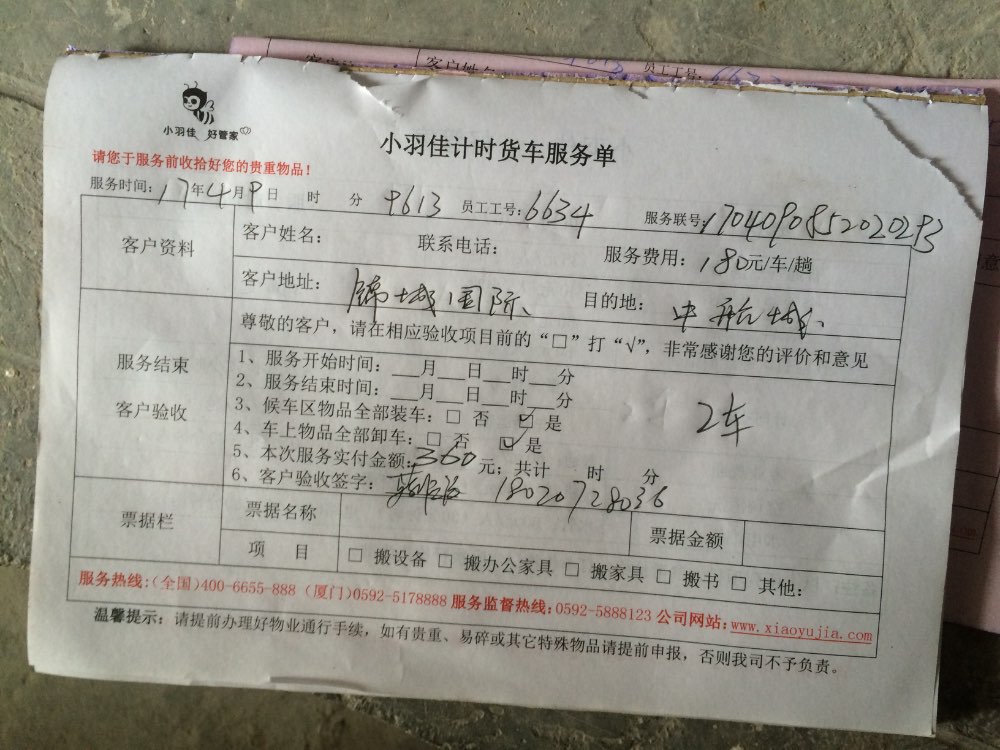 客户姓名 员工工号: 6632
小羽佳 好管家
小羽佳计时货车服务单
请您于服务前收拾好您的贵重物品!
服务时间: 17年4月9日 时 分 9613 员工工号: 6634 服务联号: 1704090852020293
客户资料 客户姓名: 联系电话: 服务费用: 180元/车/趟
客户地址: 锦城国际 目的地: 中航城
尊敬的客户，请在相应验收项目前的“□”打“√”, 非常感谢您的评价和意见
服务结束
客户验收
1、服务开始时间: __月__日__时__分
2、服务结束时间: __月__日__时__分
3、候车区物品全部装车: □ 否 ☑ 是
2车
4、车上物品全部卸车: □ 否 ☑ 是
5、本次服务实付金额: 360元; 共计 时 分
6、客户验收签字: 18020728036
票据栏 票据名称 票据金额
项 目 □ 搬设备 □ 搬办公家具 □ 搬家具 □ 搬书 □ 其他:
服务热线:(全国)400-6655-888 (厦门)0592-5178888 服务监督热线:0592-5888123 公司网站:www.xiaoyujia.com
温馨提示: 请提前办理好物业通行手续，如有贵重、易碎或其它特殊物品请提前申报，否则我司不予负责。